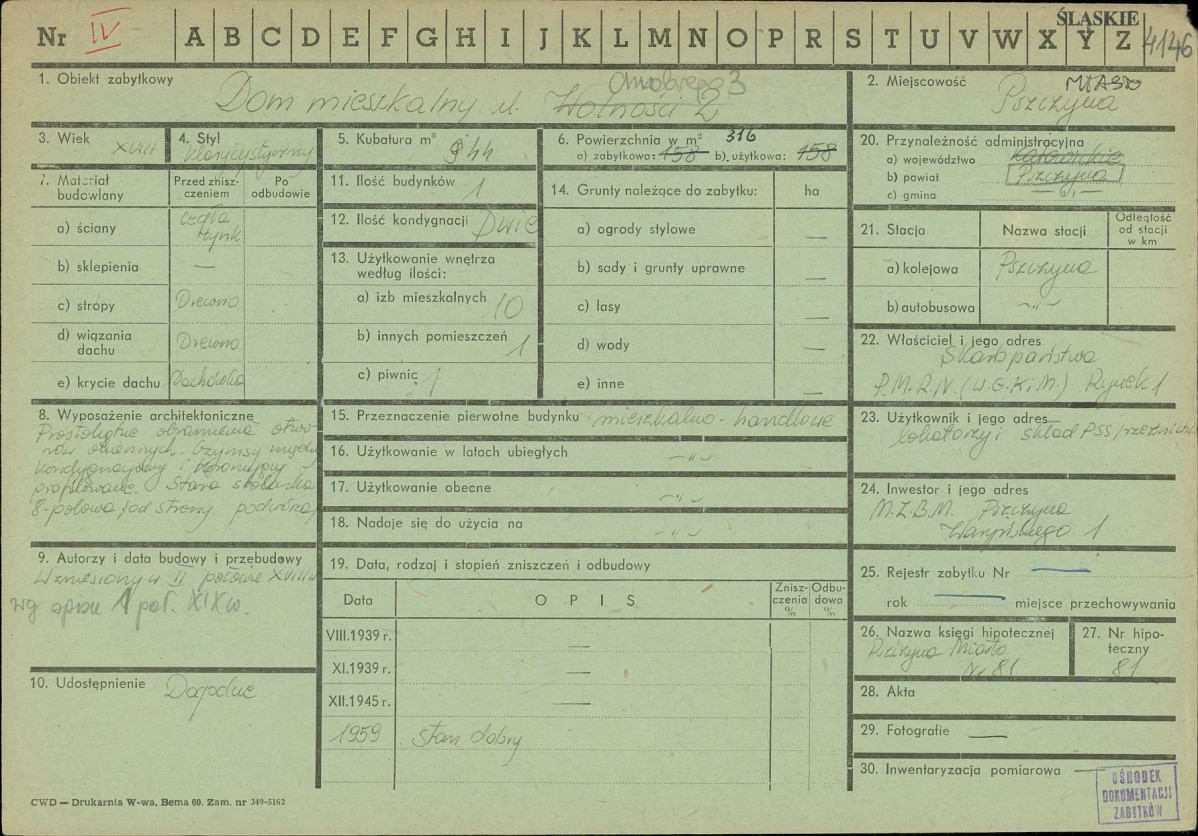 Nr IV A B C D E F G H I J K L M N O P R S T U V W X Y Z
ŚLĄSKIE
4146
1. Obiekt zabytkowy
Chrobrego 3
Dom mieszkalny ul. Wolności 2
2. Miejscowość MIASTO
Pszczyna
3. Wiek
XVIII
4. Styl
klasycystyczny
5. Kubatura m³
944
6. Powierzchnia w m² 316
a) zabytkowa: 158 b) użytkowa: 158
20. Przynależność administracyjna
a) województwo Katowickie
b) powiat Pszczyna
c) gmina —„—
7. Materiał budowlany
Przed zniszczeniem
Po odbudowie
a) ściany cegła tynk
b) sklepienia —
c) stropy Drewno
d) wiązania dachu Drewno
e) krycie dachu Dachówka
11. Ilość budynków 1
12. Ilość kondygnacji Dwie
13. Użytkowanie wnętrza
według ilości:
a) izb mieszkalnych 10
b) innych pomieszczeń 1
c) piwnic 1
14. Grunty należące do zabytku: ha
a) ogrody stylowe —
b) sady i grunty uprawne —
c) lasy —
d) wody —
e) inne —
21. Stacja Nazwa stacji Odległość od stacji w km
a) kolejowa Pszczyna
b) autobusowa —„—
22. Właściciel i jego adres
Skarb państwa
P.M.R.N. (W.G.K.i.M.) Rynek 1
8. Wyposażenie architektoniczne
Prostokątne obramienia otwo-
rów okiennych. Gzymsy między
kondygnacyjny i koronujący
profilowane. Stara stolarka
8-polowa /od strony podwórza/
15. Przeznaczenie pierwotne budynku mieszkalno-handlowe
16. Użytkowanie w latach ubiegłych —„—
17. Użytkowanie obecne —„—
18. Nadaje się do użycia na —„—
23. Użytkownik i jego adres
lokatorzy i skład PSS
24. Inwestor i jego adres
M.Z.B.M. Pszczyna
Waryńskiego 1
9. Autorzy i data budowy i przebudowy
Wzniesiony w II połowie XVIII w
wg spisu 1 poł. XIX w.
19. Data, rodzaj i stopień zniszczeń i odbudowy
Data OPIS Zniszczenia % Odbudowa %
VIII.1939 r. —
XI.1939 r. —
XII.1945 r. —
1959 stan dobry
25. Rejestr zabytku Nr —
rok — miejsce przechowywania
26. Nazwa księgi hipotecznej
Pszczyna Miasto
Nr 81
27. Nr hipoteczny
81
10. Udostępnienie Dogodne
28. Akta
29. Fotografie —
30. Inwentaryzacja pomiarowa —
OŚRODEK
DOKUMENTACJI
ZABYTKÓW
CWD — Drukarnia W-wa, Bema 60. Zam. nr 349-5162